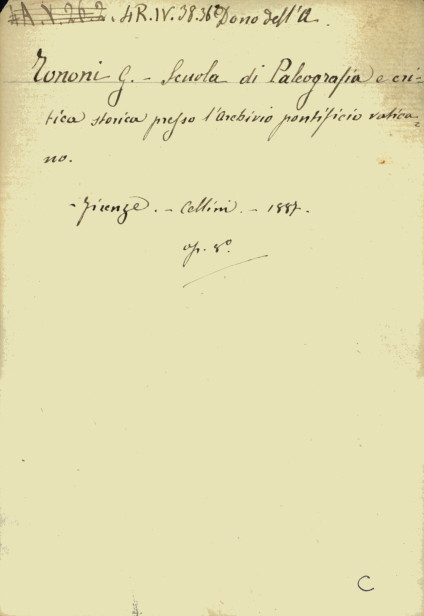 A.V.26.2. 4R.IV.38.36² Dono dell'A.
Tononi G. - Scuola di Paleografia e cri-
tica storica presso l'Archivio pontificio vatica-
no.
- Firenze. - Cellini. - 1887.
op. 8°.
C